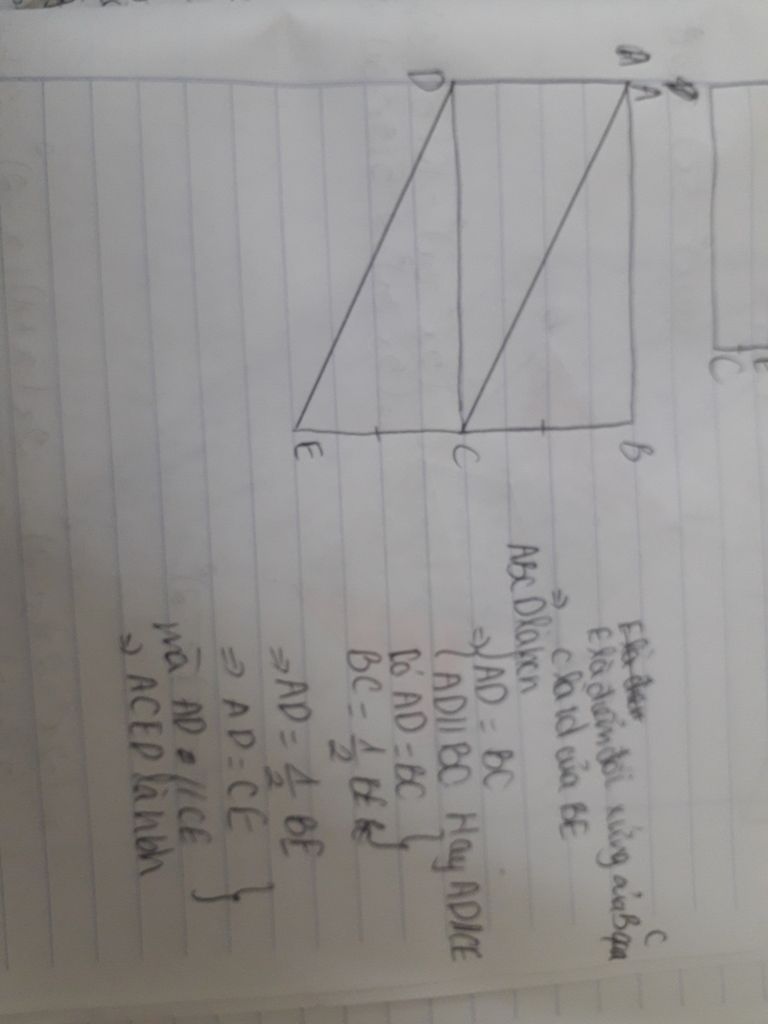 A
D
A
B
C
E
C
E
E là điểm đối xứng của B qua C
=> C là td của BE
ABCD là hcn
=> { AD = BC
AD // BC Hay AD//CE
Có AD = BC }
BC = 1/2 BE
=> AD = 1/2 BE
=> AD = CE
mà AD // CE }
=> ACED là hbh